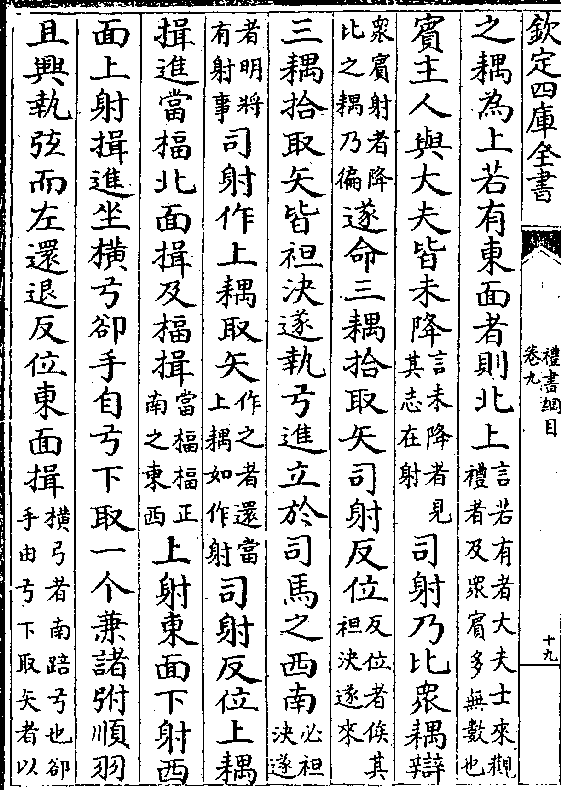 欽定四庫全書
禮書綱目
卷九
十九
之耦為上若有東面者則北上言若有者大夫士來觀禮者及眾賓多無數也
賓主人與大夫皆未降言未降者見其志在射司射乃比眾耦辯
眾賓射者降比之耦乃徧遂命三耦拾取矢司射反位反位者俟其袒決遂來
三耦拾取矢皆袒決遂執弓進立於司馬之西南必袒決遂
者明將有射事司射作上耦取矢作之者還當上耦如作射司射反位上耦
揖進當楅北面揖及楅揖當楅楅正南之東西上射東面下射西
面上射揖進坐橫弓卻手自弓下取一个兼諸弣順羽
且興執弦而左還退反位東面揖橫弓者南踣弓也卻手由弓下取矢者以